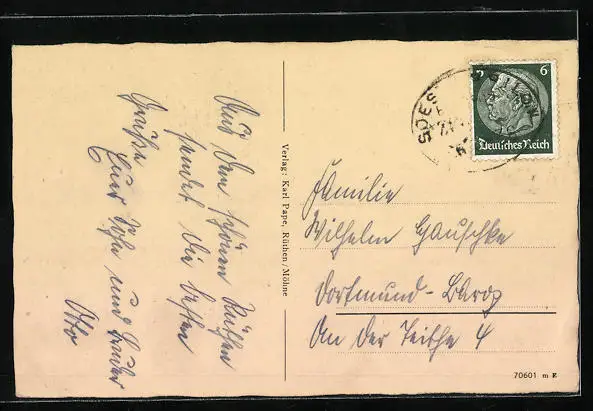 Aus dem schönen Rüthen
sendet die besten
Grüße
Euer Sohn und Bruder
Otto
Verlag: Karl Pape, Rüthen/Möhne
6
Deutsches Reich
SOEST
Familie
Wilhelm Gauschke
Dortmund-Barop
An der Teithe 4
70601 m E